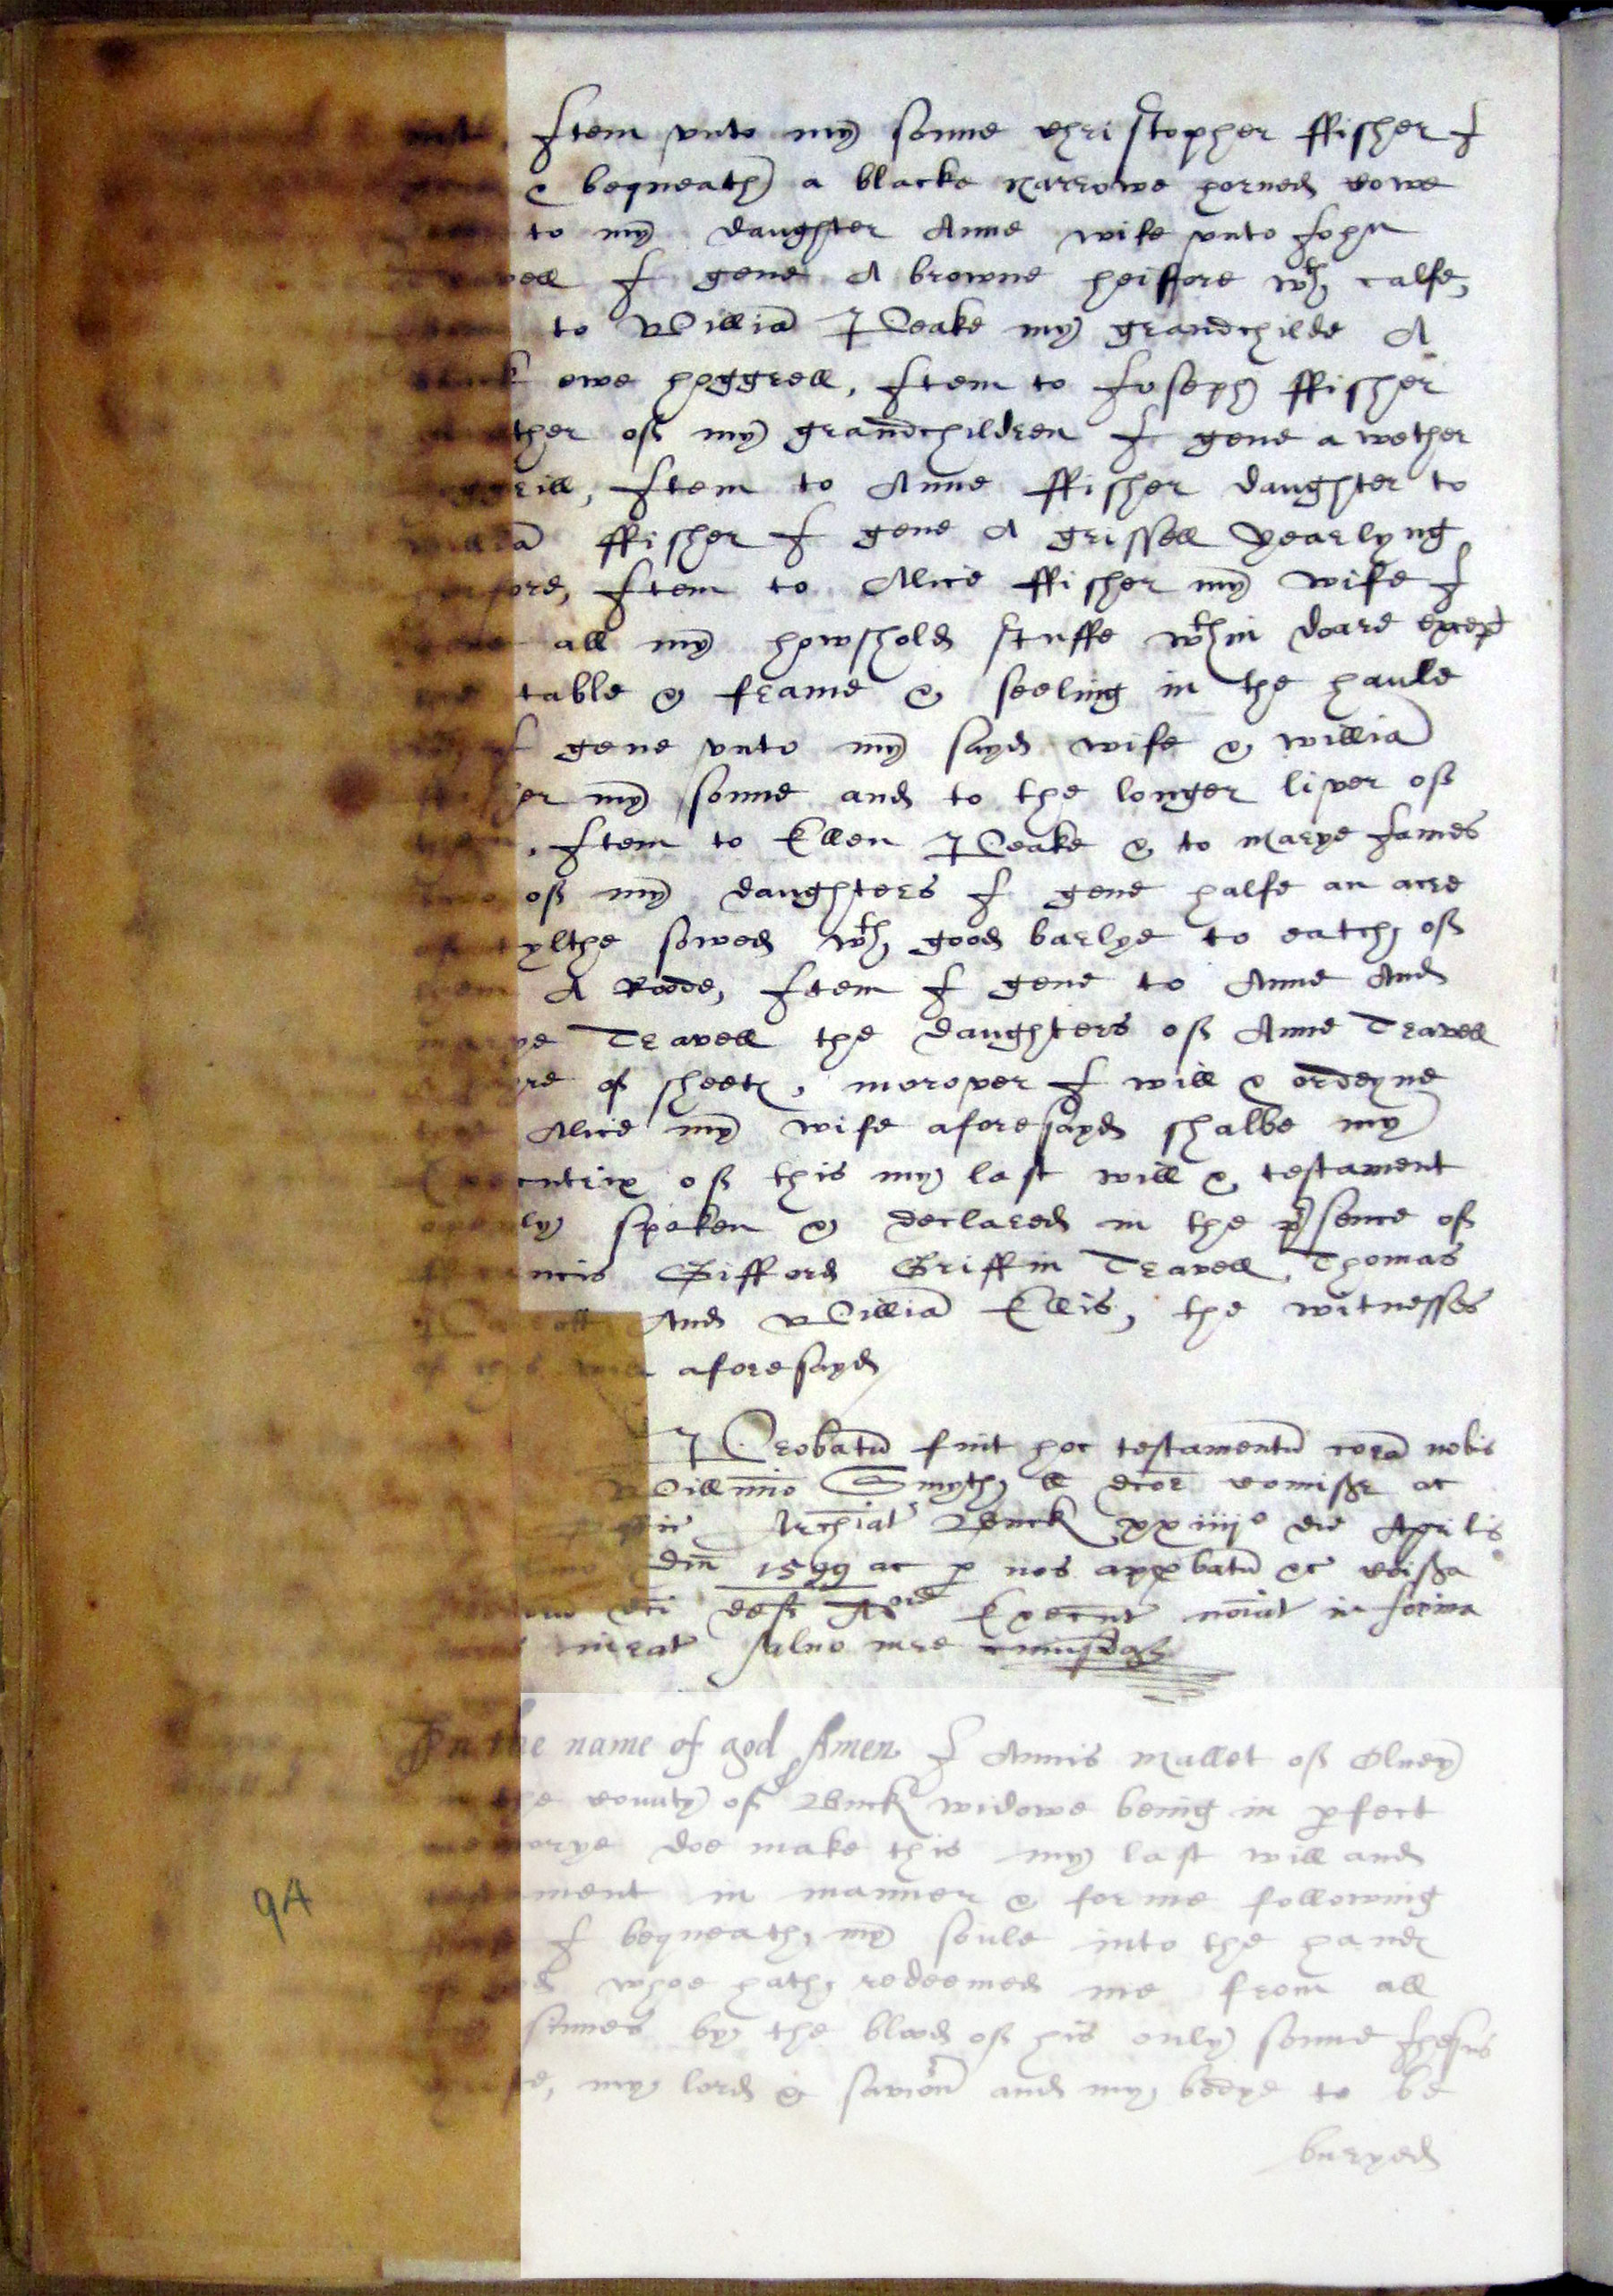 Item unto my sonne Christopher ffisher I
& bequeath a blacke narrowe horned cowe
to my daughter Anne wife unto John
I geve A browne heiffore wth calfe,
to Willia Peake my grandchilde A
ewe hoggrell, Item to Joseph ffisher
of my grandchildren I geve a wether
Item to Anne ffisher daughter to
willia ffisher I geve A grissell yearlyng
Item to Alice ffisher my wife I
all my howshold stuffe wthin doare except
table & frame & seeling in the haule
I geve unto my sayd wife & willia
my sonne and to the longer liver of
Item to Ellen Peake & to Marye James
of my daughters I geve halfe an acre
of tylthe sowed wth good barlye to eatch of
them A Roode, Item I geve to Anne And
marye Travell the daughters of Anne Travell
of sheets, morover I will & ordeyne
Alice my wife aforesayd shalbe my
Executrix of this my last will & testament
openly spoken & declared in the psence of
ffrancis Gifford Griffin Travell, Thomas
And Willia Ellis, the witnesses
aforesayd
Probatu fuit hoc testamentu cora nobis
Willimo Smyth, ll dcor comissr ac
Archiat Buck xxiiijo die Aprilis
dni 1599 ac p nos approbatu &c
dci def Execut noiat in forma
iurat salvo iure cuiuscq
In the name of god Amen I Annis Mallet of Olney
in the county of Buck widowe being in pfect
memorye doe make this my last will and
testament in manner & forme following
I bequeath my soule into the hands
whoe hath redeemed me from all
sinnes by the blood of his only sonne Jhesus
my lord & saviour and my bodye to be
buryed
94